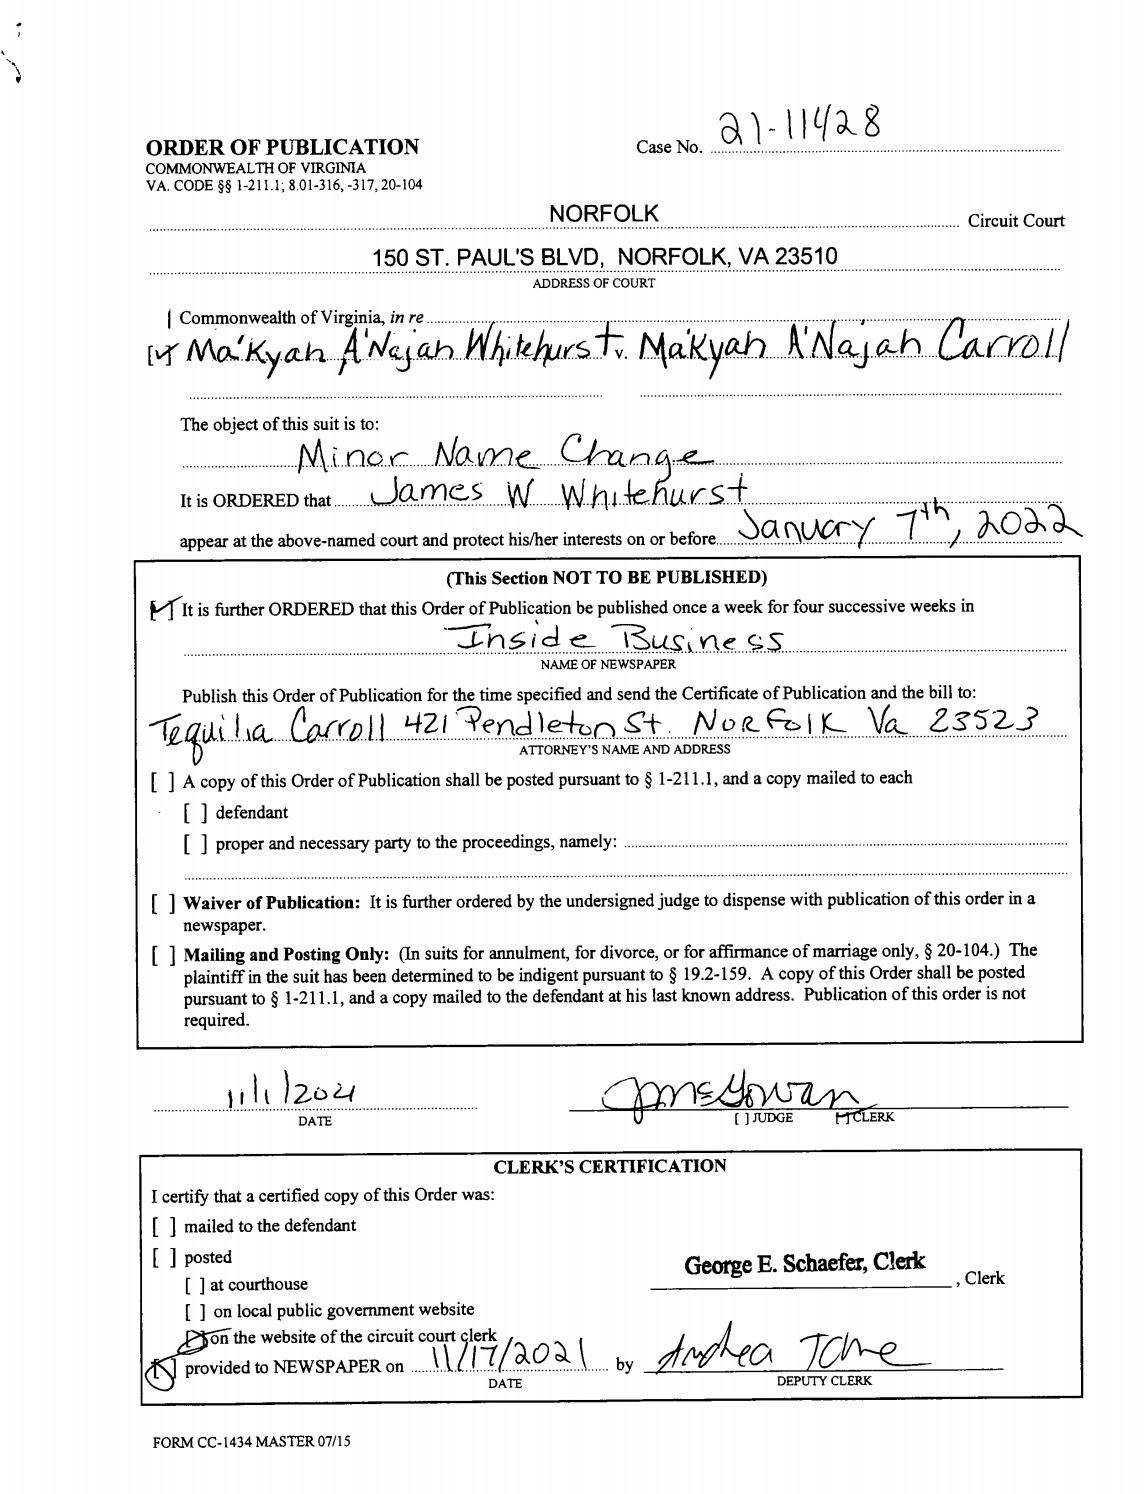 ORDER OF PUBLICATION
Case No. 21-11428
COMMONWEALTH OF VIRGINIA
VA. CODE §§ 1-211.1; 8.01-316, -317, 20-104
NORFOLK Circuit Court
150 ST. PAUL'S BLVD, NORFOLK, VA 23510
ADDRESS OF COURT
Commonwealth of Virginia, in re
Ma'Kyah A'Najah Whitehurst v. Ma'Kyah A'Najah Carroll
The object of this suit is to:
Minor Name Change
It is ORDERED that James W Whitehurst
appear at the above-named court and protect his/her interests on or before January 7th, 2022
(This Section NOT TO BE PUBLISHED)
[✓] It is further ORDERED that this Order of Publication be published once a week for four successive weeks in
Inside Business
NAME OF NEWSPAPER
Publish this Order of Publication for the time specified and send the Certificate of Publication and the bill to:
Tequilia Carroll 421 Pendleton St. Norfolk Va 23523
ATTORNEY'S NAME AND ADDRESS
[ ] A copy of this Order of Publication shall be posted pursuant to § 1-211.1, and a copy mailed to each
[ ] defendant
[ ] proper and necessary party to the proceedings, namely:
[ ] Waiver of Publication: It is further ordered by the undersigned judge to dispense with publication of this order in a
newspaper.
[ ] Mailing and Posting Only: (In suits for annulment, for divorce, or for affirmance of marriage only, § 20-104.) The
plaintiff in the suit has been determined to be indigent pursuant to § 19.2-159. A copy of this Order shall be posted
pursuant to § 1-211.1, and a copy mailed to the defendant at his last known address. Publication of this order is not
required.
11/1/2021 JMcGowan
DATE [ ] JUDGE [✓] CLERK
CLERK'S CERTIFICATION
I certify that a certified copy of this Order was:
[ ] mailed to the defendant
[ ] posted
George E. Schaefer, Clerk
, Clerk
[ ] at courthouse
[ ] on local public government website
on the website of the circuit court clerk
provided to NEWSPAPER on 11/17/2021 by
DATE DEPUTY CLERK
FORM CC-1434 MASTER 07/15